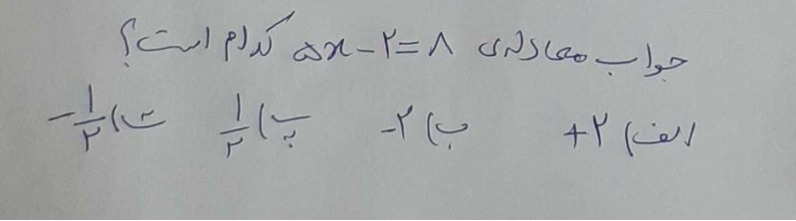 جواب معادله‌ی ۵x-۲=۸ کدام است؟
الف) +۲ ب) -۲ پ) ۱/۲ ت) -۱/۲